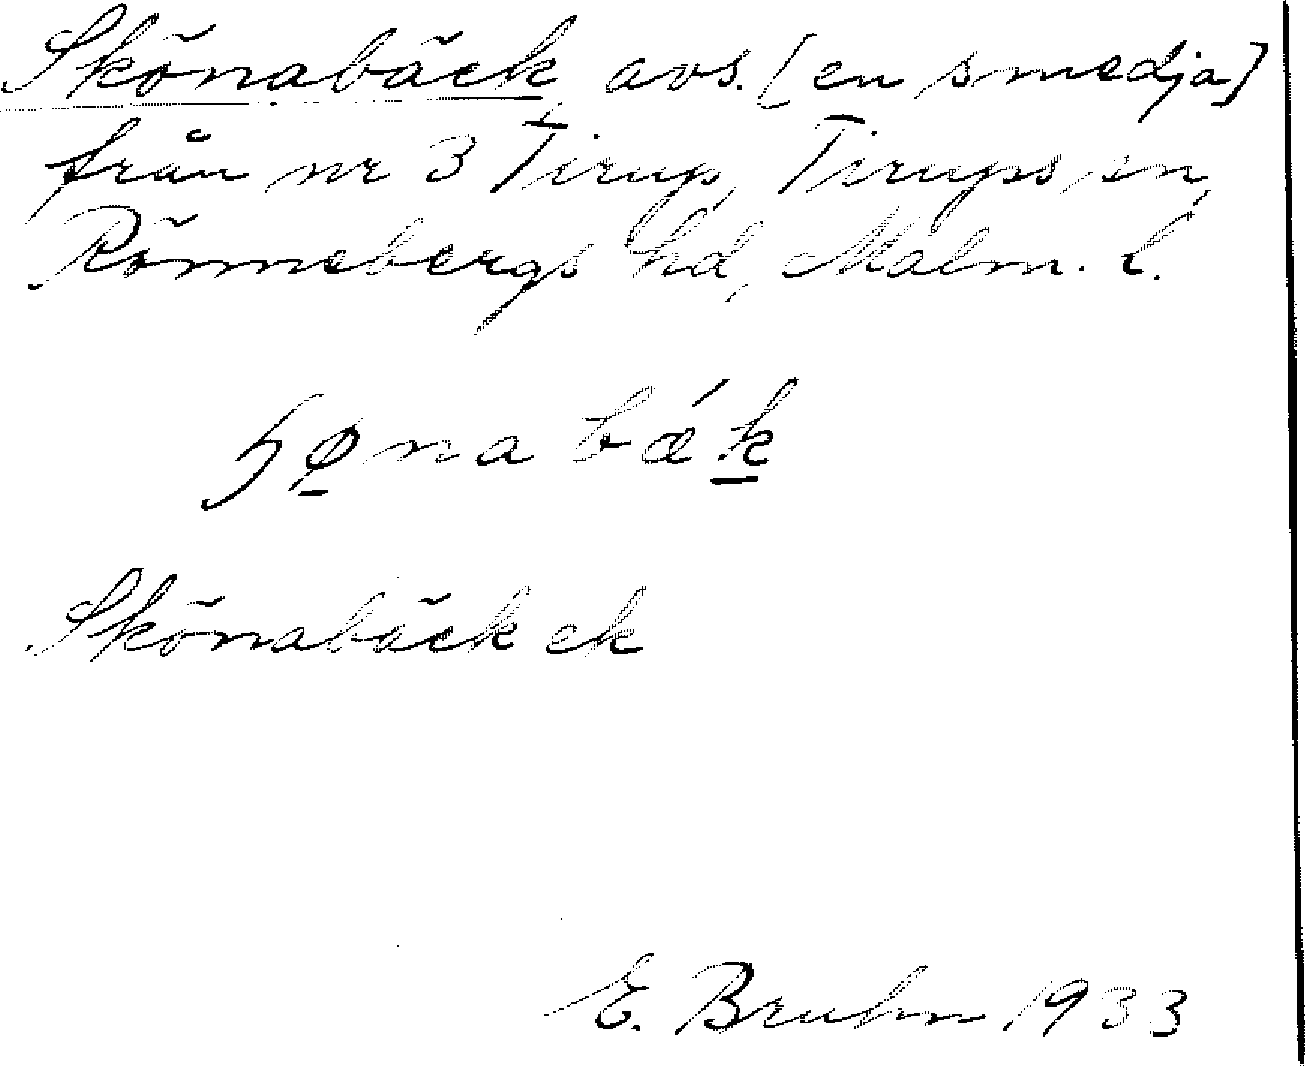 Skönabäck avs. [en smedja]
från nr 3 Tirup, Tirups sn,
Rönnebergs hd, Malm. l.
ɧø̱na bǽḵ
Skönabäck ek
E. Bruhn 1933